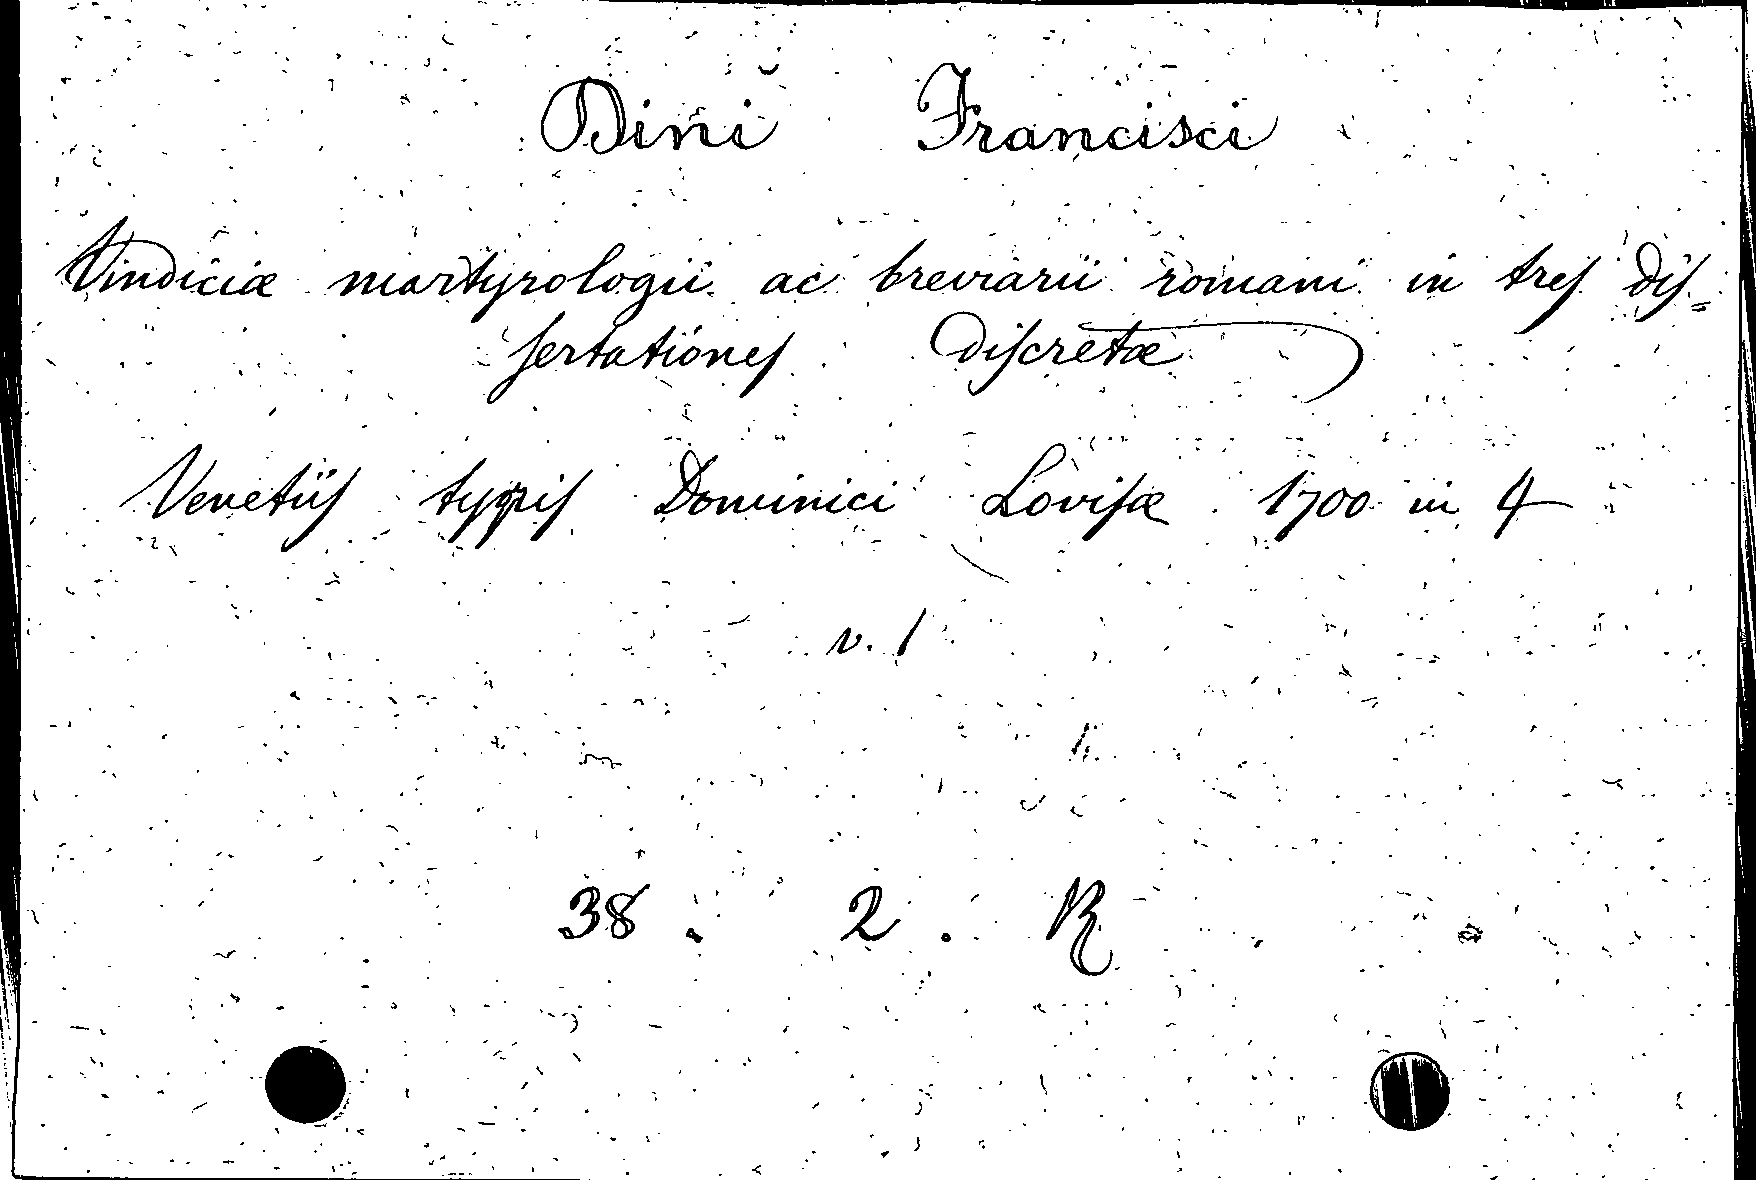 Dini Francisci
Vindiciæ martyrologii ac breviarii romani in tres dis=
sertationes discretæ
Venetiis typis Dominici Lovisæ 1700 in 4
v. 1
38. 2. R